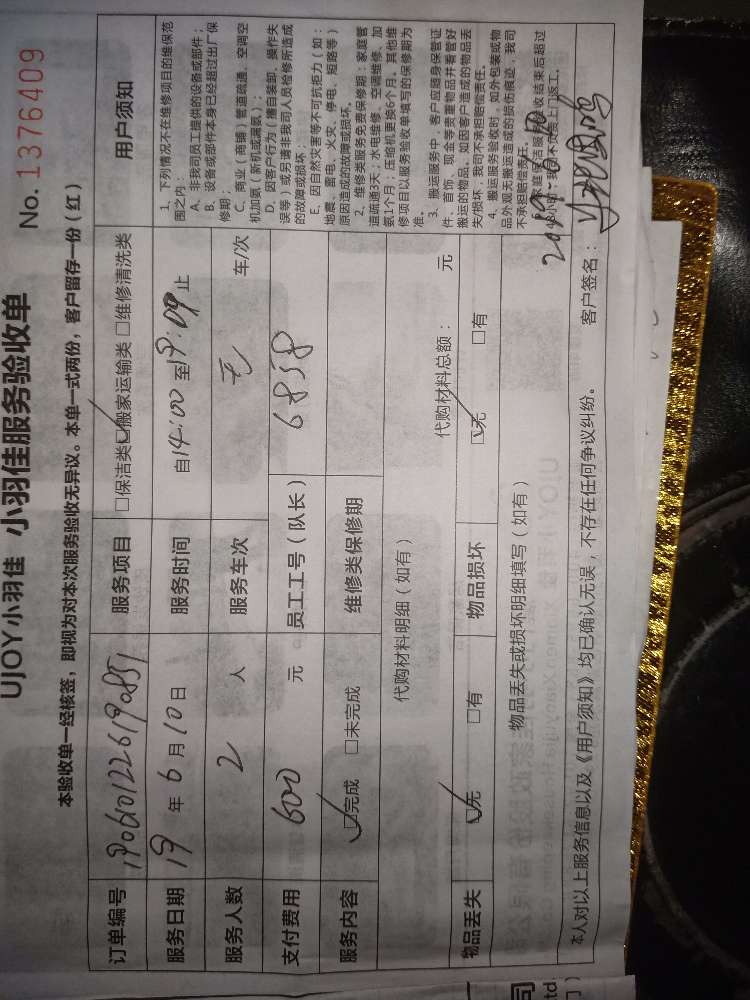 UJOY小羽佳 小羽佳服务验收单 No. 1376409
本验收单一经核签，即视为对本次服务验收无异议。本单一式两份，客户留存一份（红）
订单编号
服务项目 □保洁类 ☑搬家运输类 □维修清洗类
服务日期 19 年 6 月 10 日
服务时间 自14:00 至 止
服务人数 2 人
服务车次 无 车/次
支付费用 600 元
员工工号（队长） 6858
服务内容 ☑完成 □未完成
维修类保修期
代购材料明细（如有） 代购材料总额： 元
物品丢失 ☑无 □有
物品损坏 ☑无 □有
物品丢失或损坏明细填写（如有）
用户须知
1、下列情况不在维修项目的维保范
围之内：
A、非我司员工提供的设备或部件；
B、设备或部件本身已经超过出厂保
修期；
C、商业（商铺）管道疏通、空调空
机加氨（新机或漏氨）；
D、因客户行为（擅自装卸、操作失
误等）或另请非我司人员检修所造成
的故障或损坏；
E、因自然灾害等不可抗拒力（如：
地震、雷电、火灾、停电、短路等）
原因造成的故障或损坏。
2、维修类服务免费保修期：家庭管
道疏通3天；水电维修、空调维修、加
氨1个月；压缩机更换6个月。其他维
修项目以服务验收单填写的保修期为
准。
3、搬运服务中，客户应随身保管证
件、首饰、现金等贵重物品并看管好
搬运的物品。如因客户造成的物品丢
失/损坏，我司不承担赔偿责任。
4、搬运服务验收时，如外包装或物
品外观无搬运造成的损伤痕迹，我司
不承担赔偿责任。
家庭保洁服务验收结束后超过
我司不负责上门返工。
本人对以上服务信息以及《用户须知》均已确认无误，不存在任何争议纠纷。 客户签名：